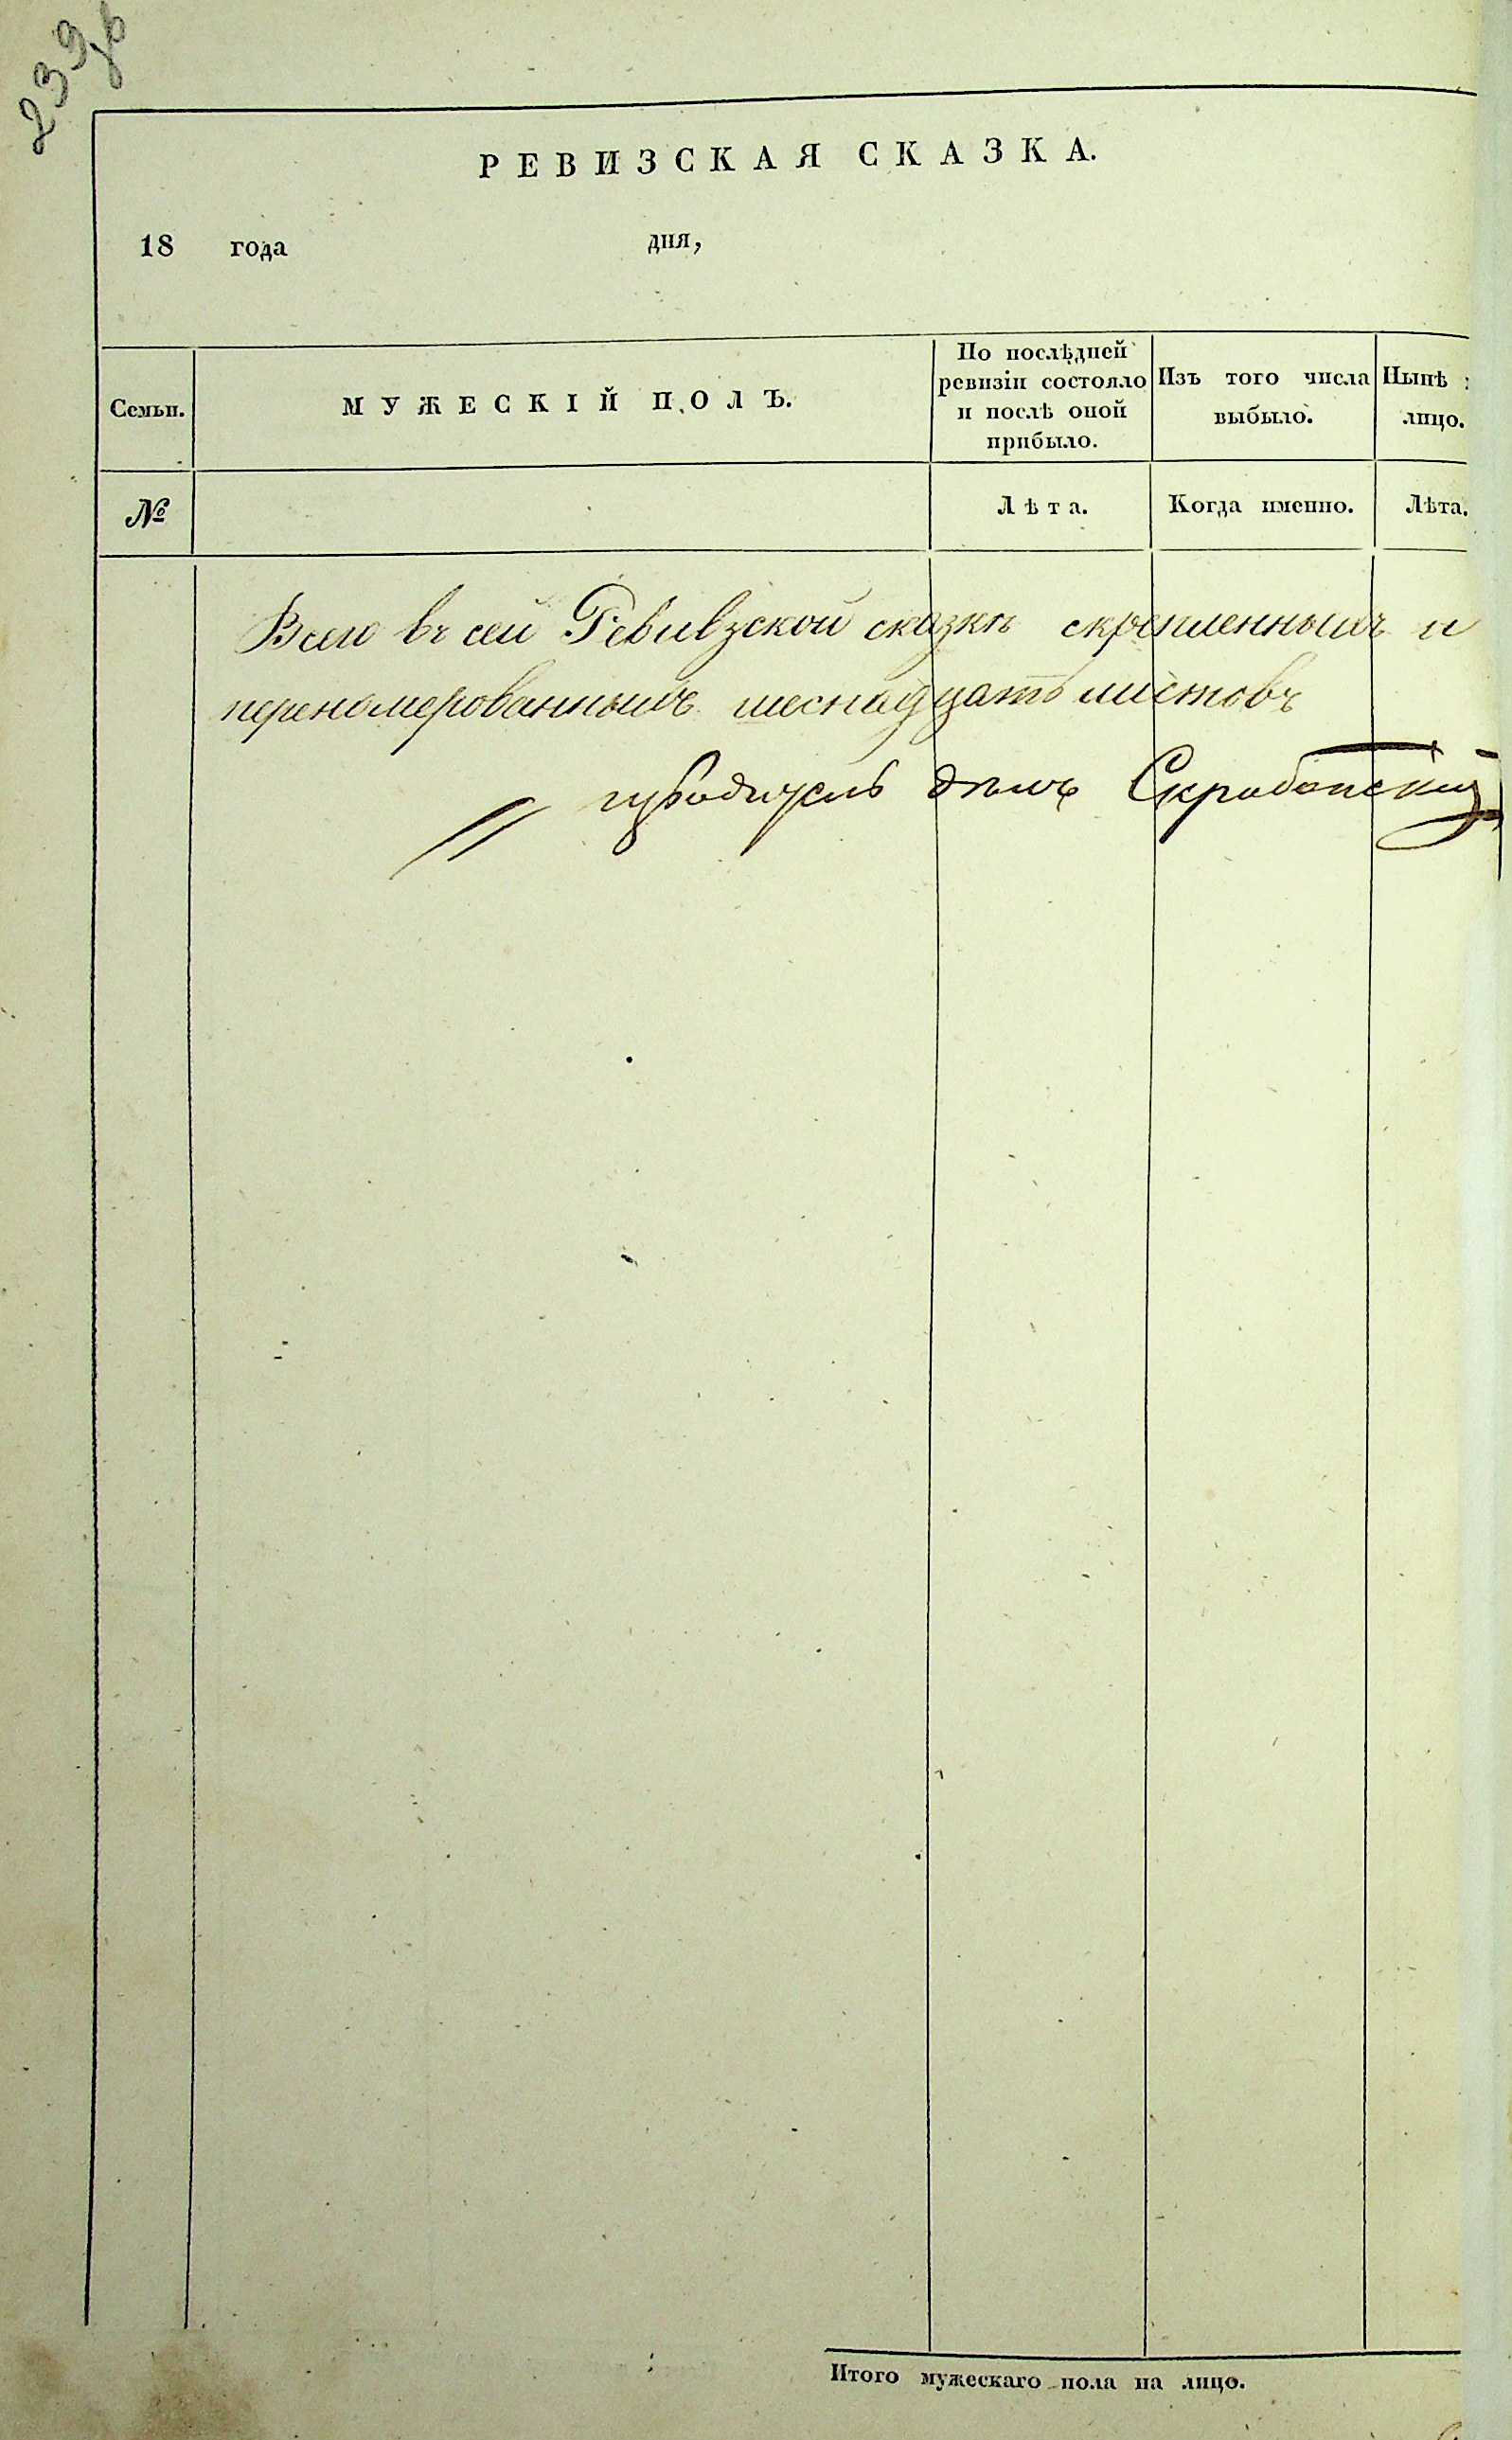 239об
РЕВИЗСКАЯ СКАЗКА.
18 года дня,
Семьи.
МУЖЕСКІЙ ПОЛЪ.
По послѣдней
ревизіи состояло
и послѣ оной
прибыло.
Изъ того числа
выбыло.
Нынѣ
лицо.
№
Лѣта.
Когда именно.
Лѣта.
Всего въ сей Ревивзской сказкѣ скрепленныхъ и
переномерованныхъ шеснадцать листовъ
дѣлъ
Итого мужескаго пола на лицо.